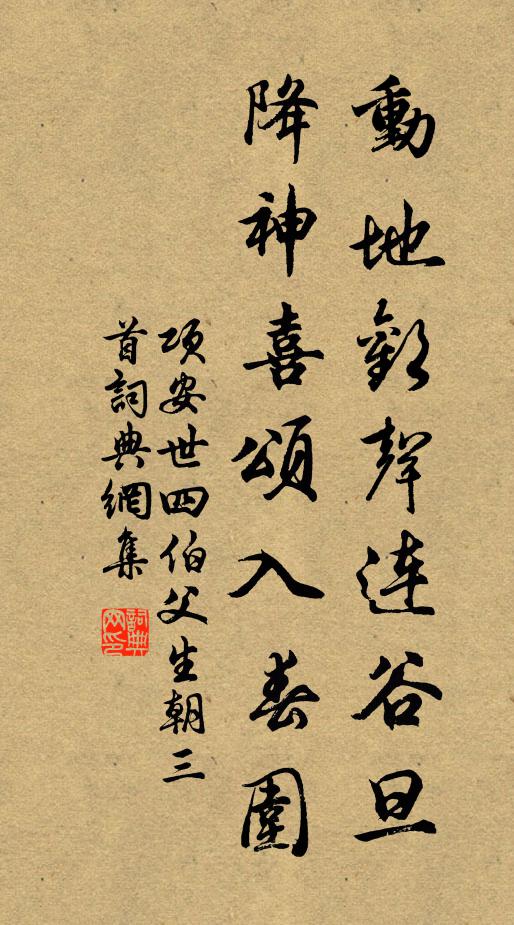 動地歡聲連谷旦
降神喜頌入春圍
項安世四伯父生朝三
首詞典網集
詞典
网印